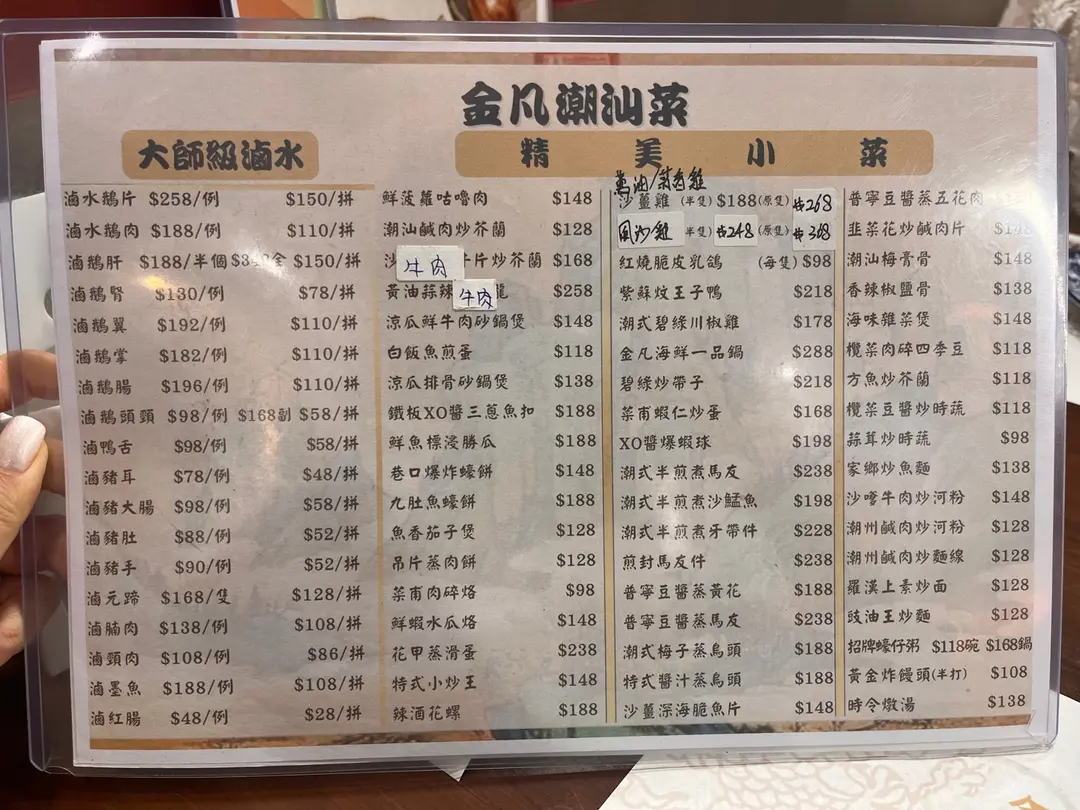 金凡潮汕菜
大師級滷水
滷水鵝片 $258/例 $150/拼
滷水鵝肉 $188/例 $110/拼
滷鵝肝 $188/半個 $150/拼
滷鵝腎 $130/例 $78/拼
滷鵝翼 $192/例 $110/拼
滷鵝掌 $182/例 $110/拼
滷鵝腸 $196/例 $110/拼
滷鵝頭頸 $98/例 $168副 $58/拼
滷鴨舌 $98/例 $58/拼
滷豬耳 $78/例 $48/拼
滷豬大腸 $98/例 $58/拼
滷豬肚 $88/例 $52/拼
滷豬手 $90/例 $52/拼
滷元蹄 $168/隻 $128/拼
滷腩肉 $138/例 $108/拼
滷頸肉 $108/例 $86/拼
滷墨魚 $188/例 $108/拼
滷紅腸 $48/例 $28/拼
精美小菜
鮮菠蘿咕嚕肉 $148
潮汕鹹肉炒芥蘭 $128
沙 牛肉 片炒芥蘭 $168
黃油蒜辣 牛肉 $258
涼瓜鮮牛肉砂鍋煲 $148
白飯魚煎蛋 $118
涼瓜排骨砂鍋煲 $138
鐵板XO醬三蔥魚扣 $188
鮮魚標浸勝瓜 $188
巷口爆炸蠔餅 $148
九肚魚蠔餅 $188
魚香茄子煲 $128
吊片蒸肉餅 $128
菜甫肉碎烙 $98
鮮蝦水瓜烙 $148
花甲蒸滑蛋 $238
特式小炒王 $148
辣酒花螺 $188
沙薑雞 (半隻) $188 (原隻) $268
風沙雞 半隻) $248 (原隻) $368
紅燒脆皮乳鴿 (每隻) $98
紫蘇炆王子鴨 $218
潮式碧綠川椒雞 $178
金凡海鮮一品鍋 $288
碧綠炒帶子 $218
菜甫蝦仁炒蛋 $168
XO醬爆蝦球 $198
潮式半煎煮馬友 $238
潮式半煎煮沙鯭魚 $198
潮式半煎煮牙帶件 $228
煎封馬友件 $238
普寧豆醬蒸黃花 $188
普寧豆醬蒸馬友 $238
潮式梅子蒸烏頭 $188
特式醬汁蒸烏頭 $188
沙薑深海脆魚片 $148
普寧豆醬蒸五花肉
韭菜花炒鹹肉片
潮汕梅膏骨 $148
香辣椒鹽骨 $138
海味雜菜煲 $148
欖菜肉碎四季豆 $118
方魚炒芥蘭 $118
欖菜豆醬炒時蔬 $118
蒜茸炒時蔬 $98
家鄉炒魚麵 $138
沙嗲牛肉炒河粉 $148
潮州鹹肉炒河粉 $128
潮州鹹肉炒麵線 $128
羅漢上素炒面 $128
豉油王炒麵 $128
招牌蠔仔粥 $118碗 $168鍋
黃金炸饅頭(半打) $108
時令燉湯 $138